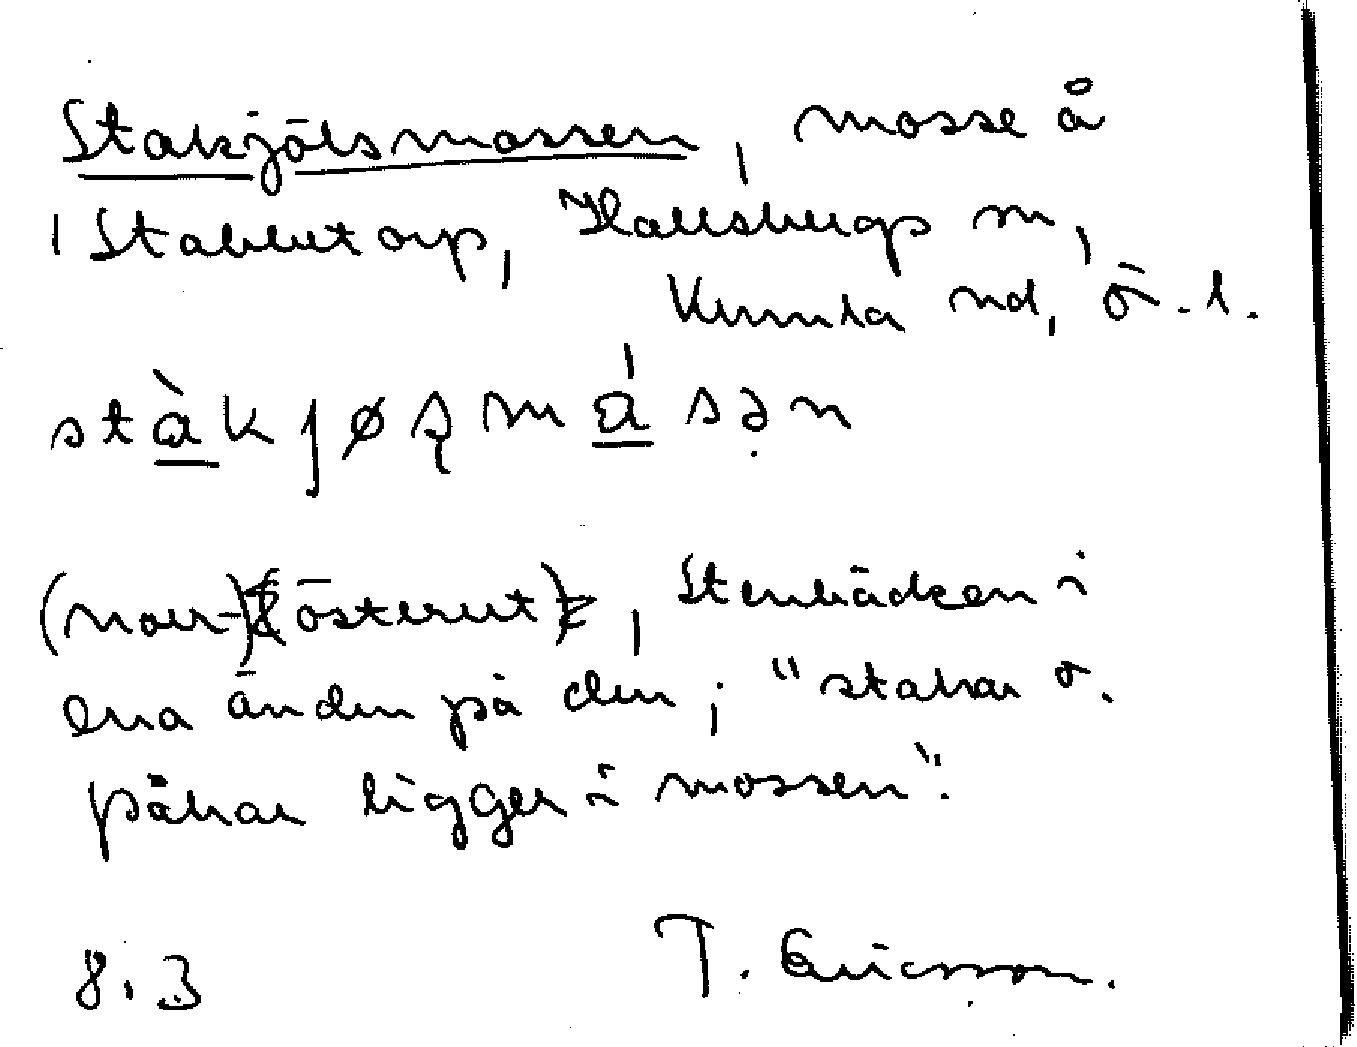 Stakjölsmossen, mosse å
1 Stabbetorp, Hallsbergs sn,
Kumla hd, ö. l.
(norr-) (österut), Stenbäcken i
ena änden på den; "stakar o.
pålar ligger i mossen".
8.3 T. Ericsson.